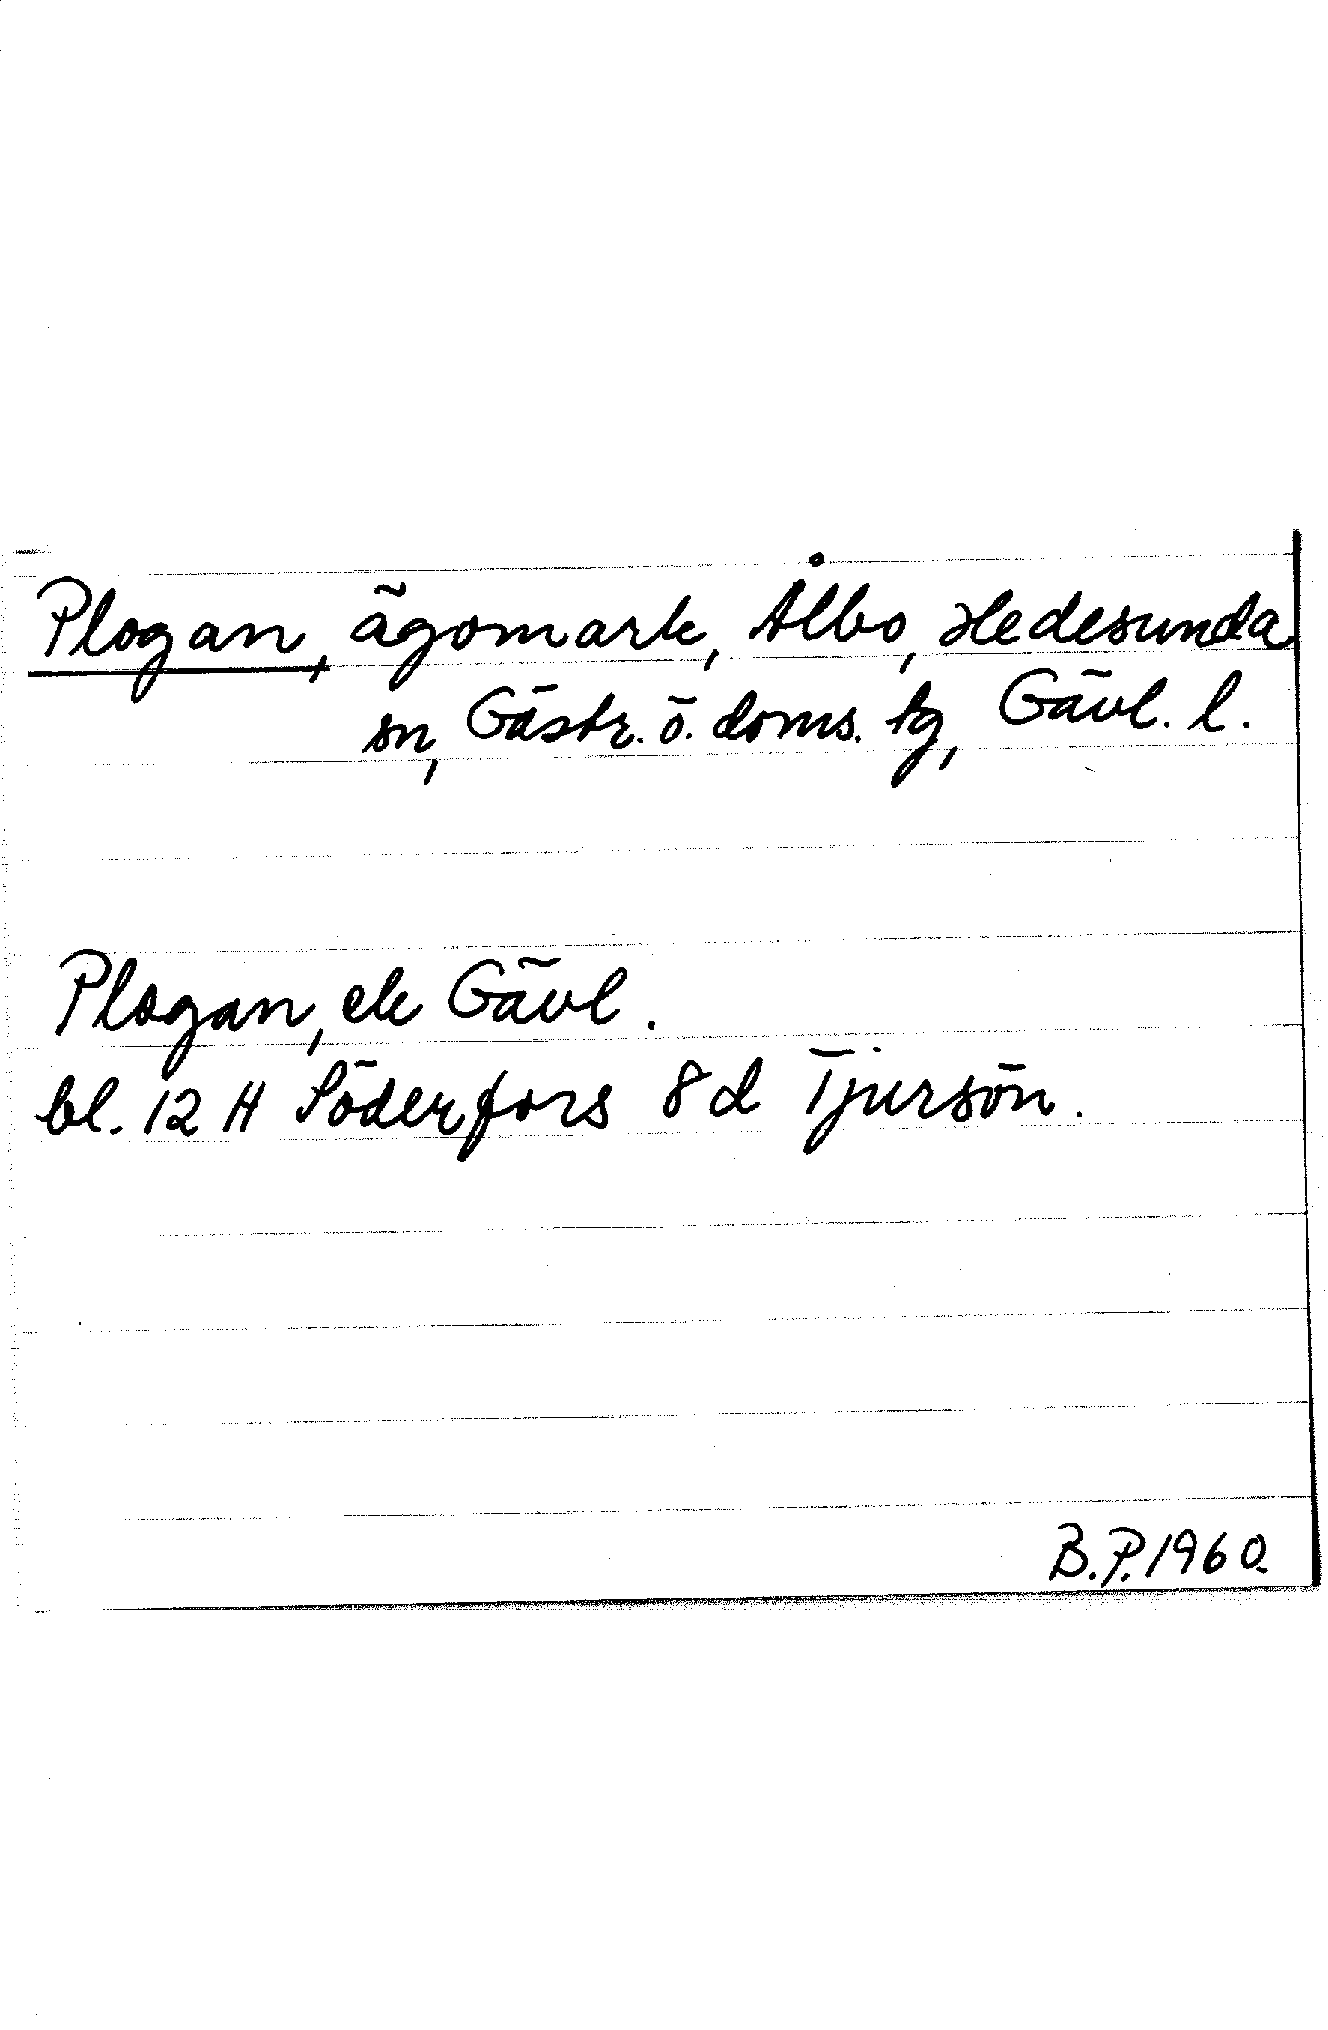 Plogan, ägomark, Ålbo, Hedesunda
sn, Gästr. ö. doms. tg, Gävl. l.
Plogan, ek Gävl.
bl. 12 H Söderfors 8 d Tjursön.
B.P. 1960